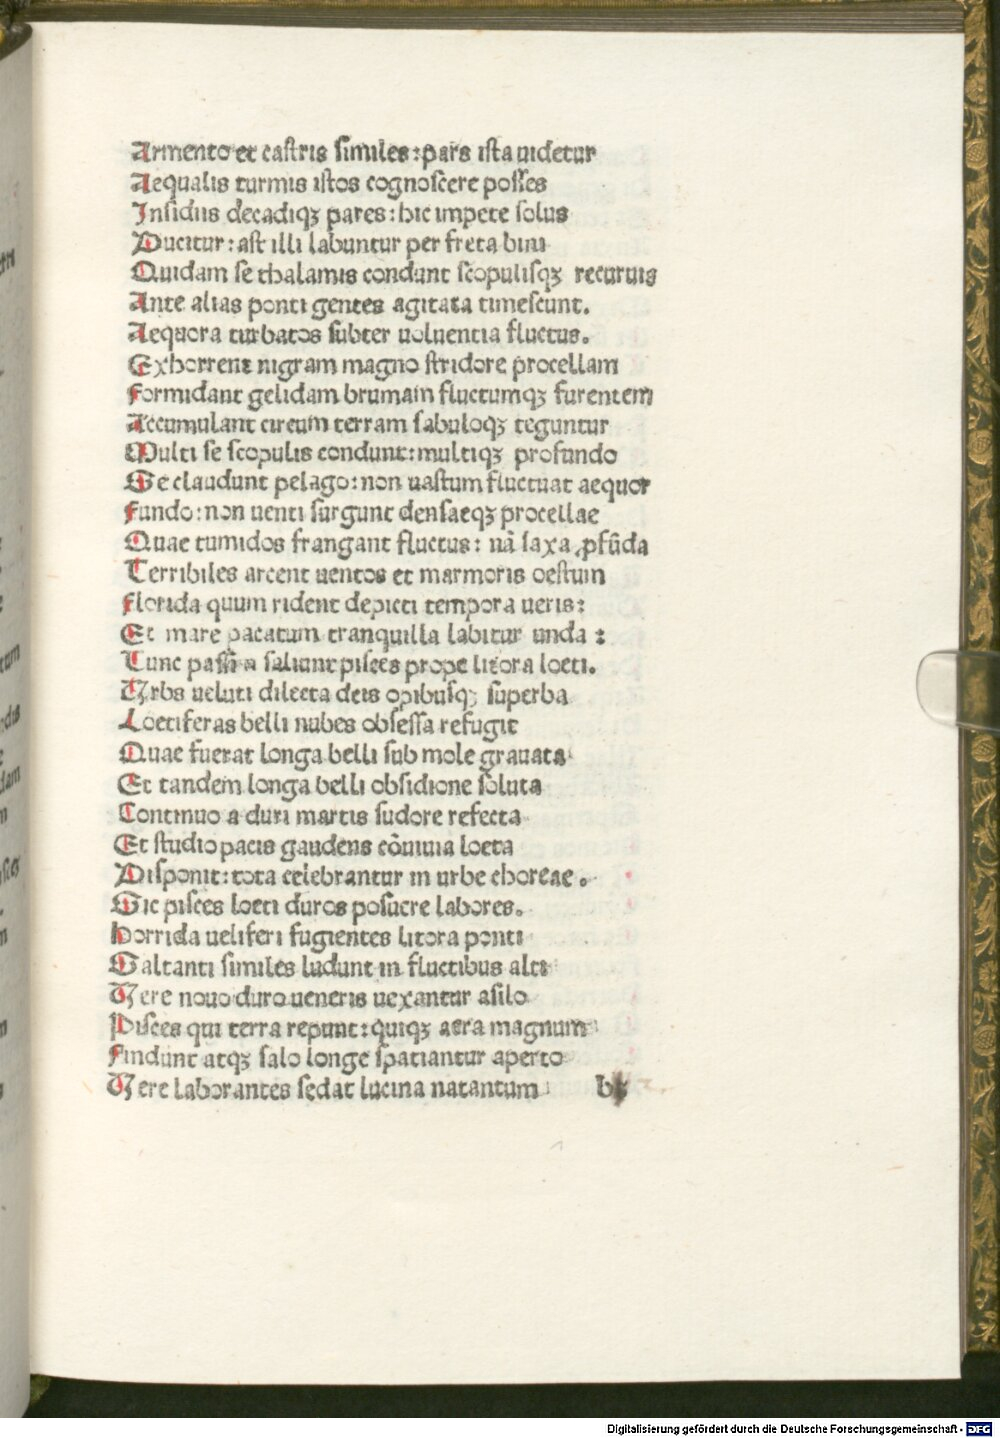 Armento et castris similes: pars ista uidetur
Aequalis turmis istos cognoscere posses
Insidiis decadiqȝ pares: hic impete solus
Ducitur: ast illi labuntur per freta bini
Quidam se thalamis condunt scopulisqȝ recuruis
Ante alias ponti gentes agitata timescunt.
Aequora turbatos subter uoluentia fluctus.
Exhorrent nigram magno stridore procellam
Formidant gelidam brumam fluctumqȝ furentem
Accumulant circum terram sabuloqȝ teguntur
Multi se scopulis condunt: multiqȝ profundo
Se claudunt pelago: non uastum fluctuat aequor
Fundo: non uenti surgunt densaeqȝ procellae
Quae tumidos frangant fluctus: nā saxa ꝓfūda
Terribiles arcent uentos et marmoris oestum
Florida quum rident depicti tempora ueris:
Et mare pacatum tranquilla labitur unda:
Tunc passim saliunt pisces prope litora loeti.
Urbs ueluti dilecta deis opibusqȝ superba
Loetiferas belli nubes obsessa refugit
Quae fuerat longa belli sub mole grauata
Et tandem longa belli obsidione soluta
Continuo a duri martis sudore refecta
Et studio pacis gaudens cōuiuia loeta
Disponit: tota celebrantur in urbe choreae.
Sic pisces loeti duros posuere labores.
Horrida ueliferi fugientes litora ponti
Saltanti similes ludunt in fluctibus alti
Vere nouo duro ueneris uexantur asilo
Pisces qui terra repunt: quiqȝ aera magnum
Findunt atqȝ salo longe spatiantur aperto
Vere laborantes sedat lucina natantum
Digitalisierung gefördert durch die Deutsche Forschungsgemeinschaft - DFG